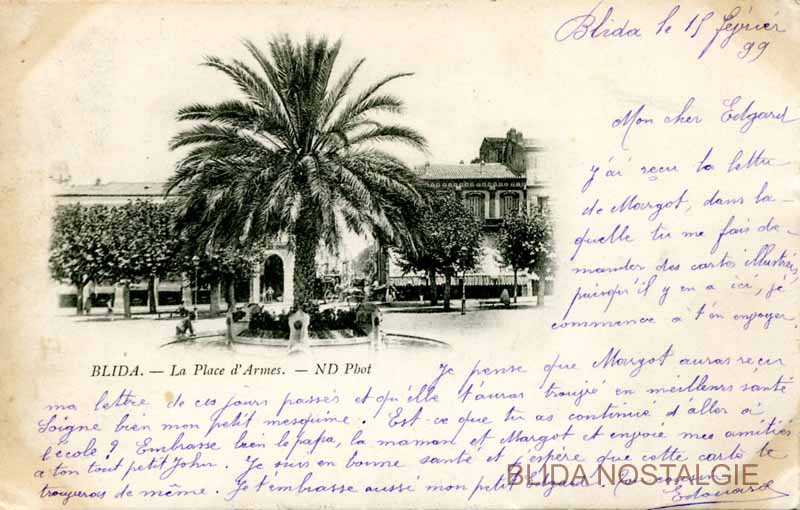 Blida le 15 février
99
Mon cher Edgard
J'ai reçu la lettre
de Margot, dans la-
quelle tu me fais de-
mander des cartes illustrées,
puisqu'il y en a ici, je
commence à t'en envoyer
BLIDA. — La Place d'Armes. — ND Phot
Je pense que Margot auras reçu
ma lettre de ces jours passés et qu'elle t'auras trouvé en meilleurs santé
Soigne bien mon petit mesquime. Est-ce que tu as continué d'aller à
l'école? Embrasse bien le papa, la maman et Margot et envoie mes amitiés
a ton tout petit John. Je suis en bonne santé et j'espère que cette carte te
trouveras de même. Je t'embrasse aussi mon petit Edgard. Ton cousin
Edouard
BLIDA NOSTALGIE